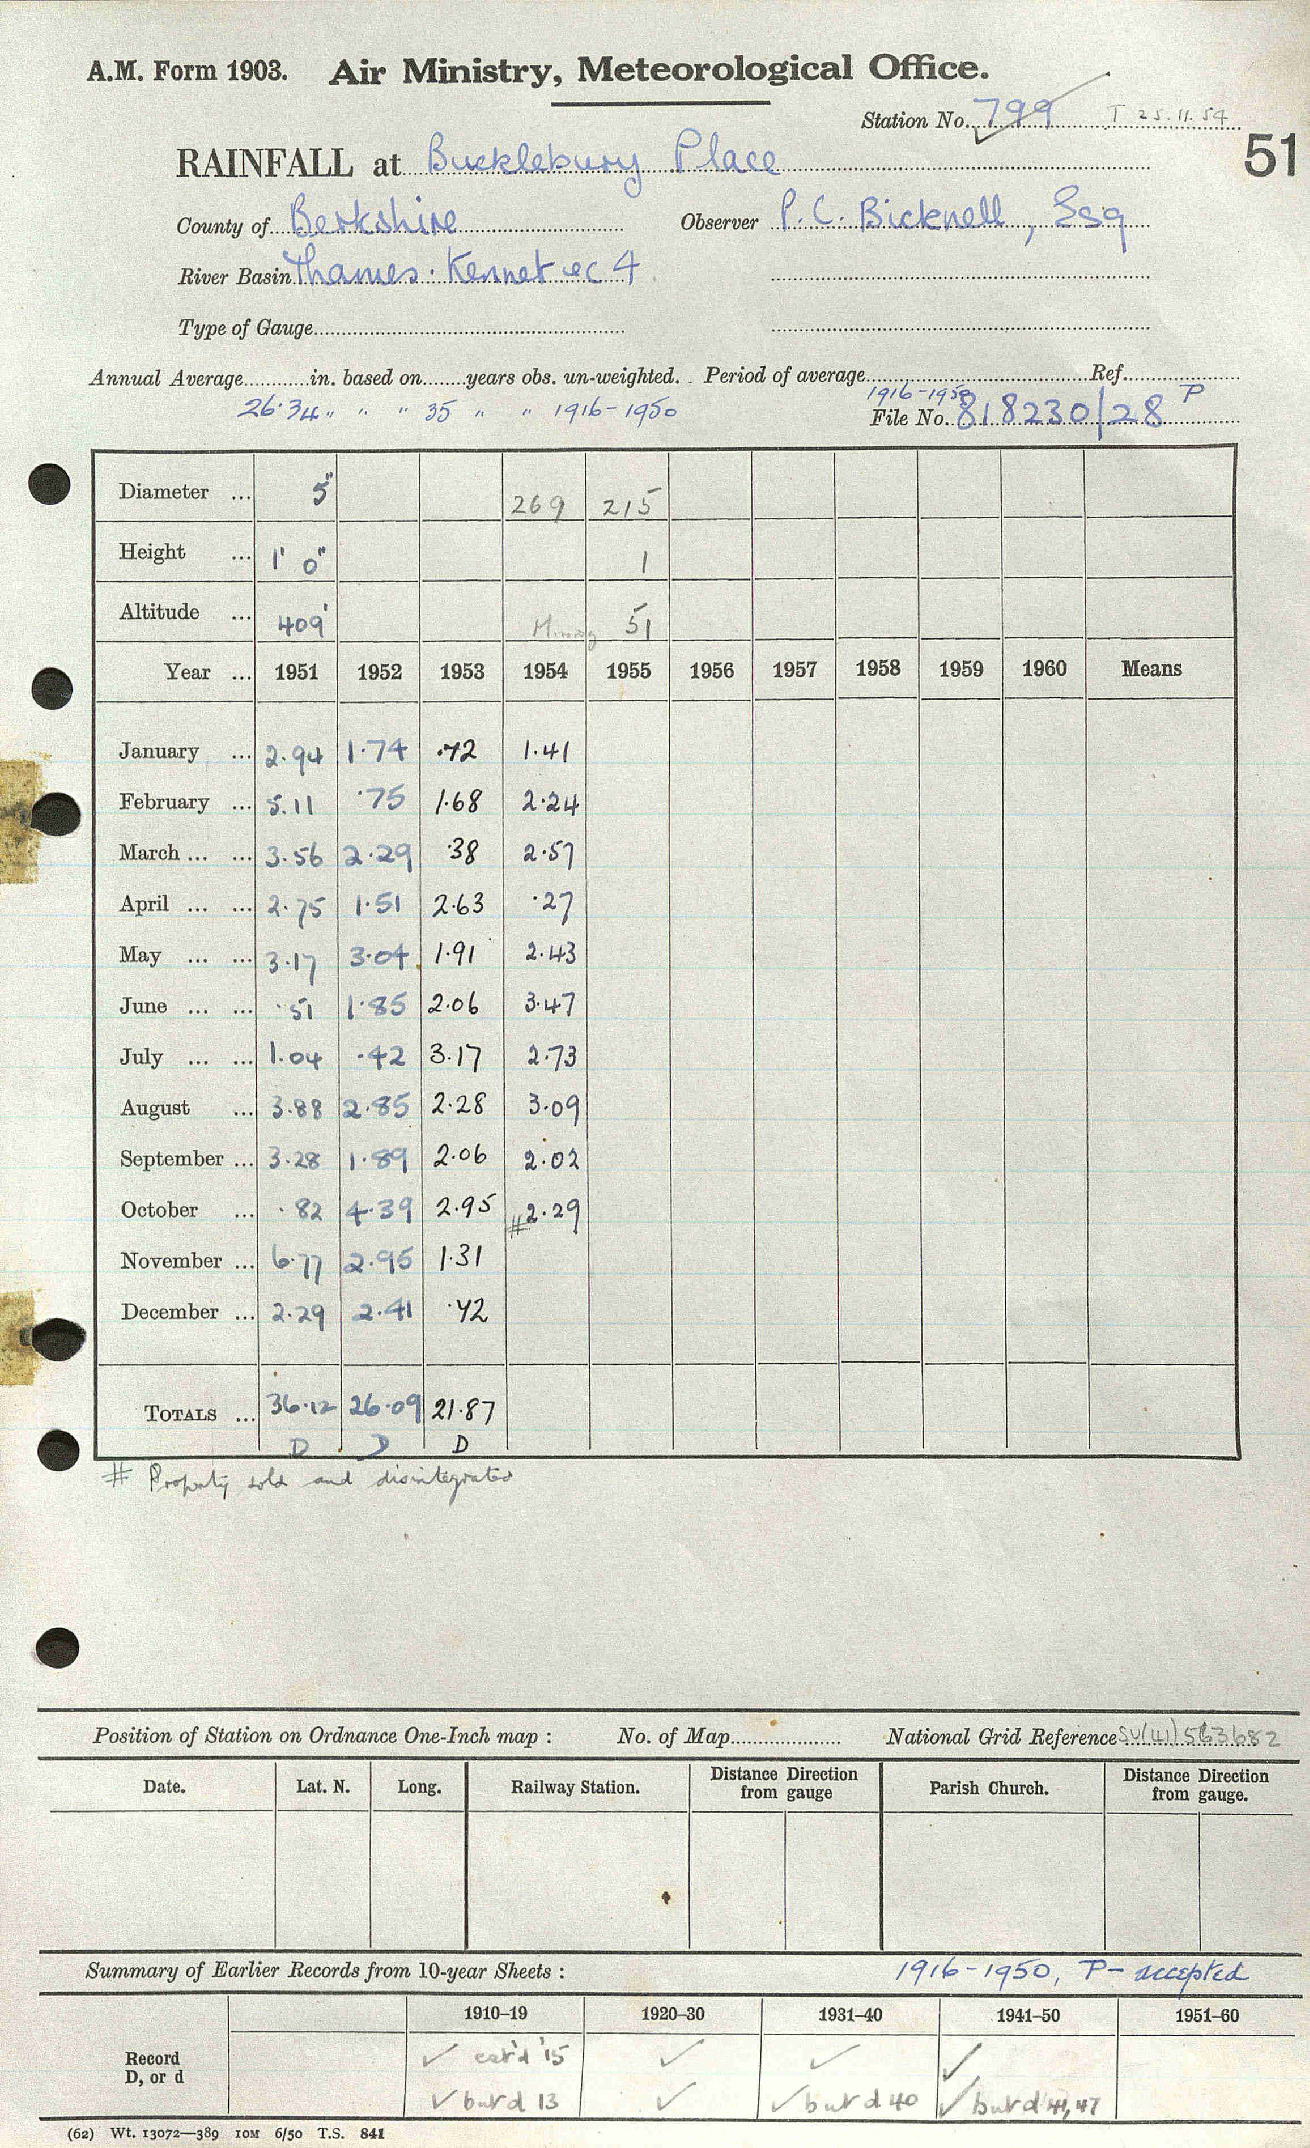 A.M. Form 1903. Air Ministry, Meteorological Office.
Station No. 799 T 25.11.54
51
RAINFALL at Bucklebury Place
County of Berkshire Observer P. C. Bicknell, Esq
River Basin Thames: Kennet &c 4
Type of Gauge
Annual Average in. based on years obs. un-weighted. Period of average 1916-1950 Ref.
26.34 " " " 35 " " 1916-1950
File No. 818230/28 P
Diameter ... 5" 269 215
Height ... 1' 0" 1
Altitude ... 409' 51
Year ... 1951 1952 1953 1954 1955 1956 1957 1958 1959 1960 Means
January ... 2.94 1.74 .72 1.41
February ... 5.11 .75 1.68 2.24
March ... ... 3.56 2.29 .38 2.57
April ... ... 2.75 1.51 2.63 .27
May ... ... 3.17 3.04 1.91 2.43
June ... ... .51 1.85 2.06 3.47
July ... ... 1.04 .42 3.17 2.73
August ... 3.88 2.85 2.28 3.09
September ... 3.28 1.89 2.06 2.02
October ... .82 4.39 2.95 #2.29
November ... 6.77 2.95 1.31
December ... 2.29 2.41 .72
TOTALS ... 36.12 26.09 21.87
D D D
# Property sold and disintegrated
Position of Station on Ordnance One-Inch map : No. of Map National Grid Reference SU(41)563682
Date. Lat. N. Long. Railway Station. Distance Direction from gauge Parish Church. Distance Direction from gauge.
Summary of Earlier Records from 10-year Sheets : 1916-1950, P- accepted
1910–19 1920–30 1931–40 1941–50 1951–60
Record D, or d
✓ est'd '15 ✓ ✓ ✓
✓ but d 13 ✓ ✓ but d 40 ✓ but d 41, 47
(62) Wt. 13072—389 10M 6/50 T.S. 841